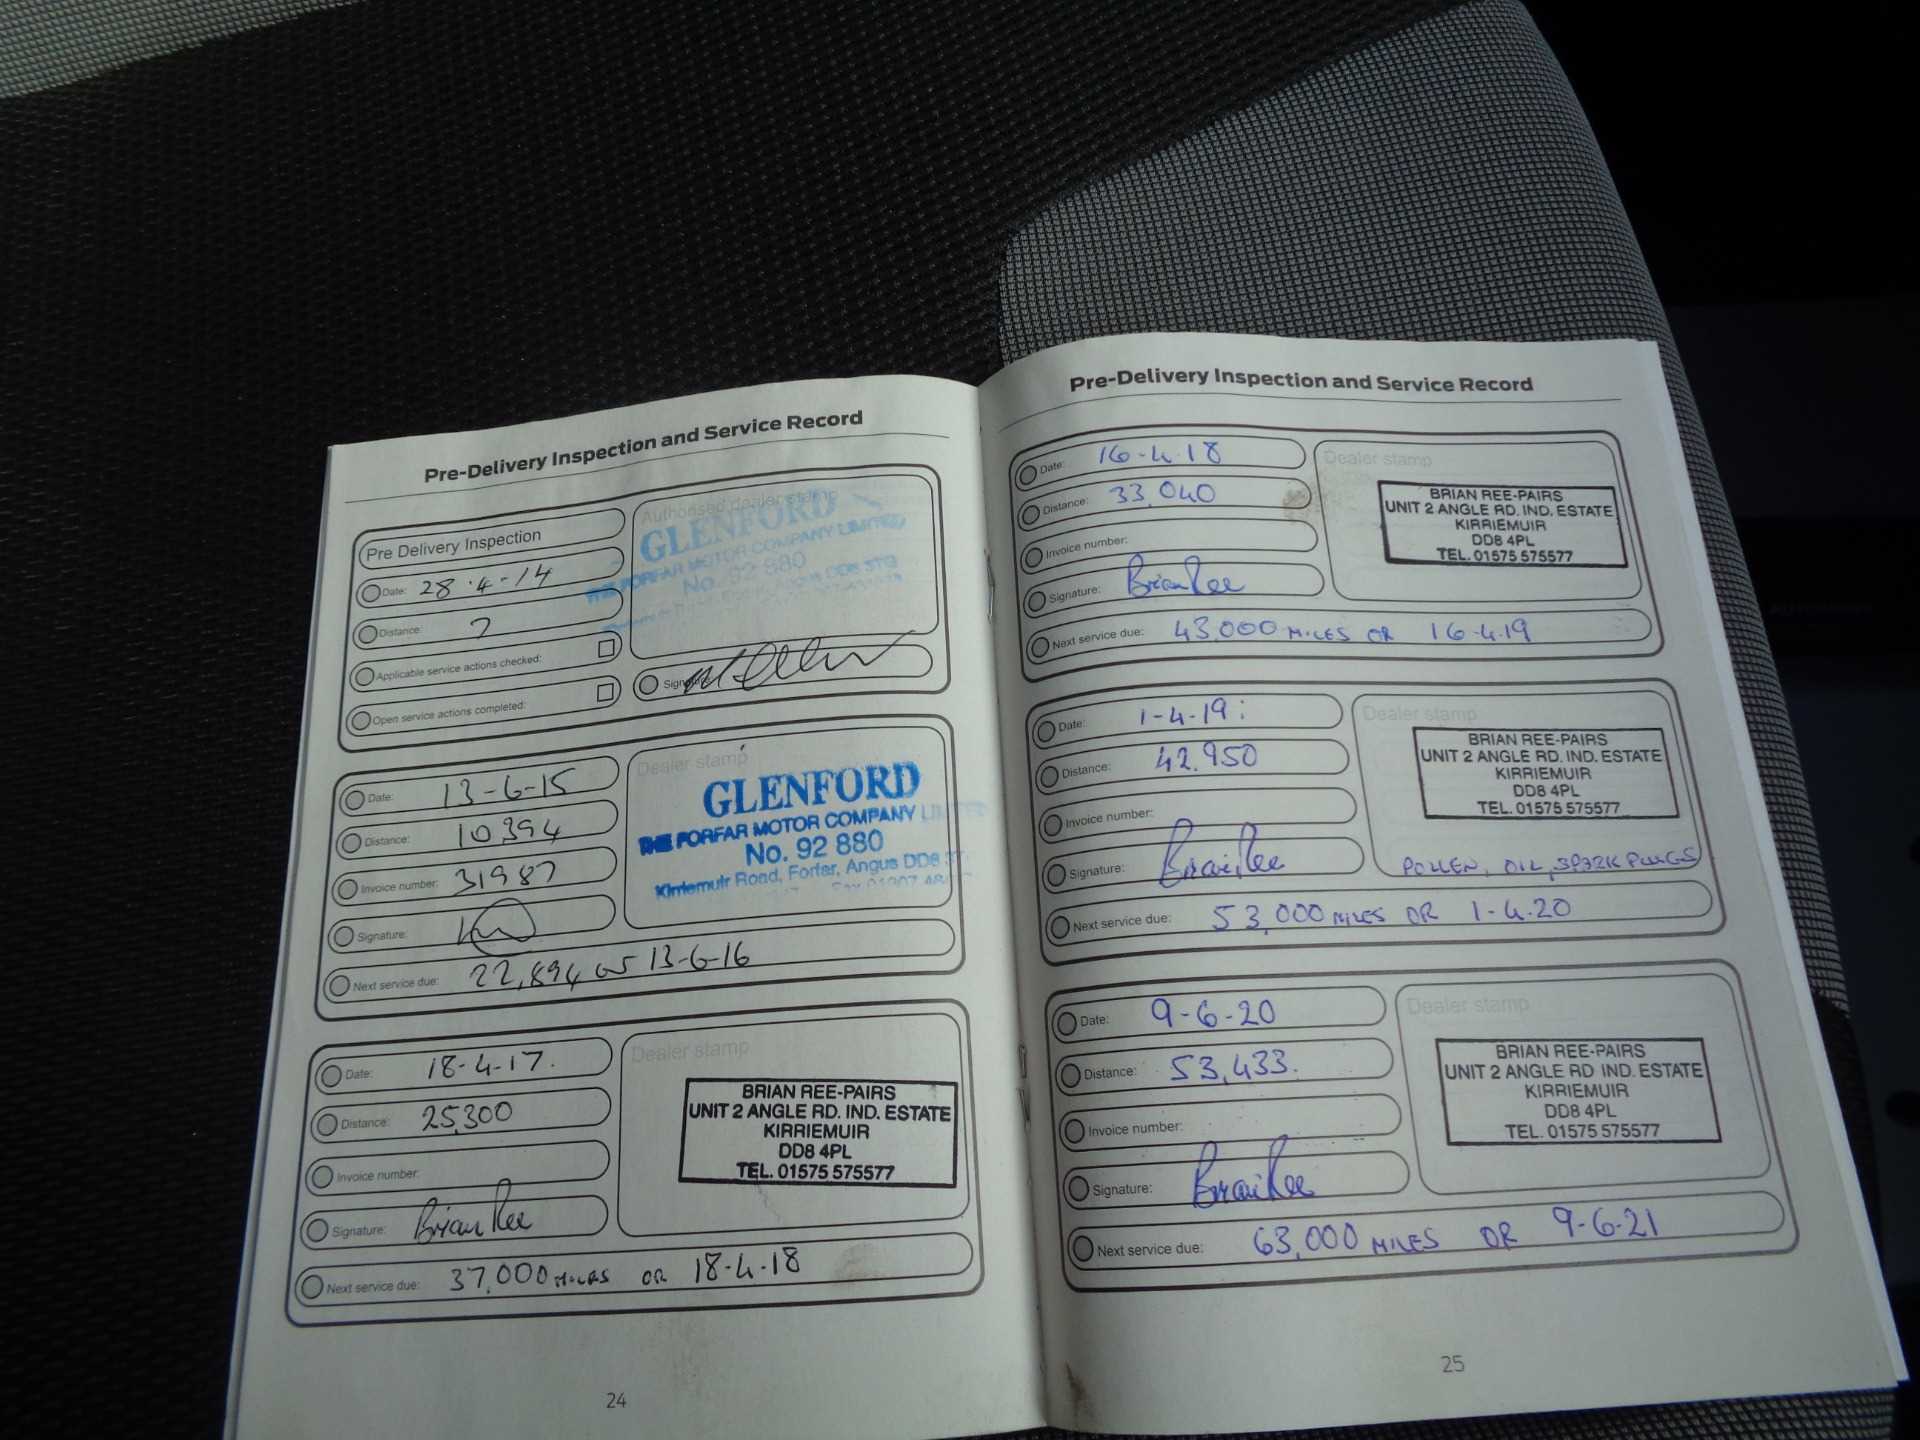 Pre-Delivery Inspection and Service Record
Pre Delivery Inspection
Date: 28-4-14
Distance: 7
Applicable service actions checked:
Open service actions completed:
Authorised dealer stamp
GLENFORD
THE FORFAR MOTOR COMPANY LIMITED
No. 92 880
Signature:
Date: 13-6-15
Distance: 10,394
Invoice number: 31987
Signature:
Next service due: 22,894 or 13-6-16
Dealer stamp
GLENFORD
THE FORFAR MOTOR COMPANY LIMITED
No. 92 880
Kirriemuir Road, Forfar, Angus DD8
Date: 18-4-17.
Distance: 25,300
Invoice number:
Signature: Brian Ree
Next service due: 37,000 MILES OR 18-4-18
Dealer stamp
BRIAN REE-PAIRS
UNIT 2 ANGLE RD. IND. ESTATE
KIRRIEMUIR
DD8 4PL
TEL. 01575 575577
24
Pre-Delivery Inspection and Service Record
Date: 16-4-18
Distance: 33,040
Invoice number:
Signature: Brian Ree
Next service due: 43,000 MILES OR 16-4-19
Dealer stamp
BRIAN REE-PAIRS
UNIT 2 ANGLE RD. IND. ESTATE
KIRRIEMUIR
DD8 4PL
TEL. 01575 575577
Date: 1-4-19
Distance: 42.950
Invoice number:
Signature: Brian Ree
Next service due: 53,000 MILES OR 1-4-20
Dealer stamp
BRIAN REE-PAIRS
UNIT 2 ANGLE RD. IND. ESTATE
KIRRIEMUIR
DD8 4PL
TEL. 01575 575577
POLLEN, OIL, SPARK PLUGS
Date: 9-6-20
Distance: 53,433.
Invoice number:
Signature: Brian Ree
Next service due: 63,000 MILES OR 9-6-21
Dealer stamp
BRIAN REE-PAIRS
UNIT 2 ANGLE RD IND. ESTATE
KIRRIEMUIR
DD8 4PL
TEL. 01575 575577
25